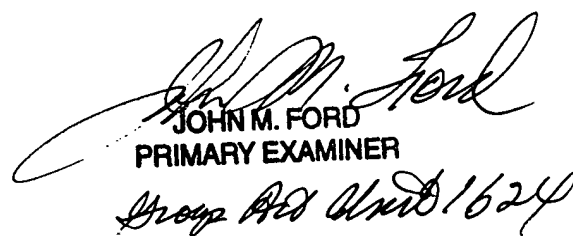 John M. Ford
JOHN M. FORD
PRIMARY EXAMINER
Group Art Unit 1624